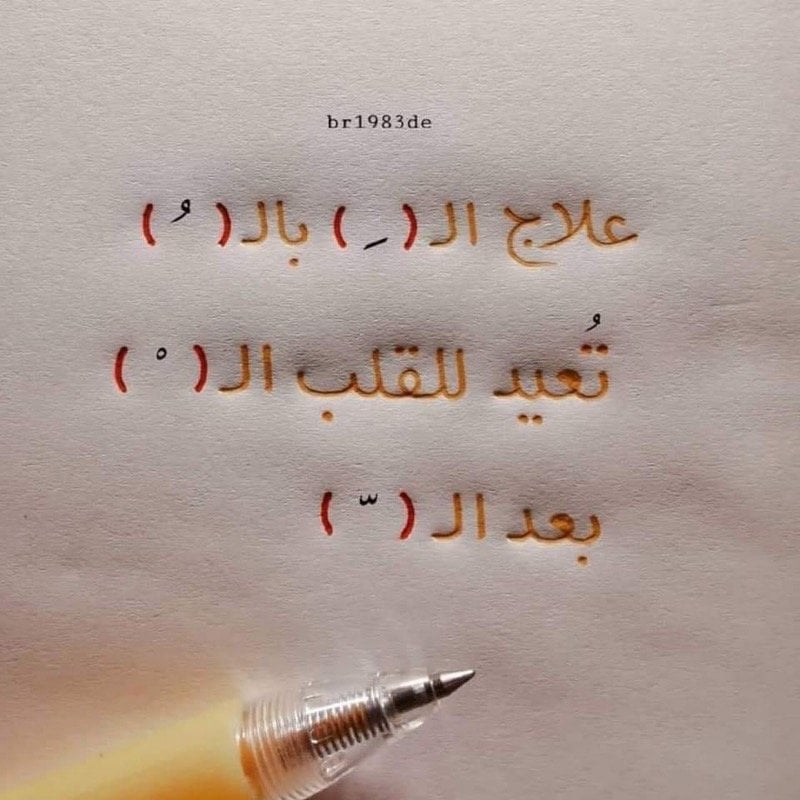 br1983de
علاج الـ( ِ ) بالـ( ُ )
تُعيد للقلب الـ( ْ )
بعد الـ( ّ )